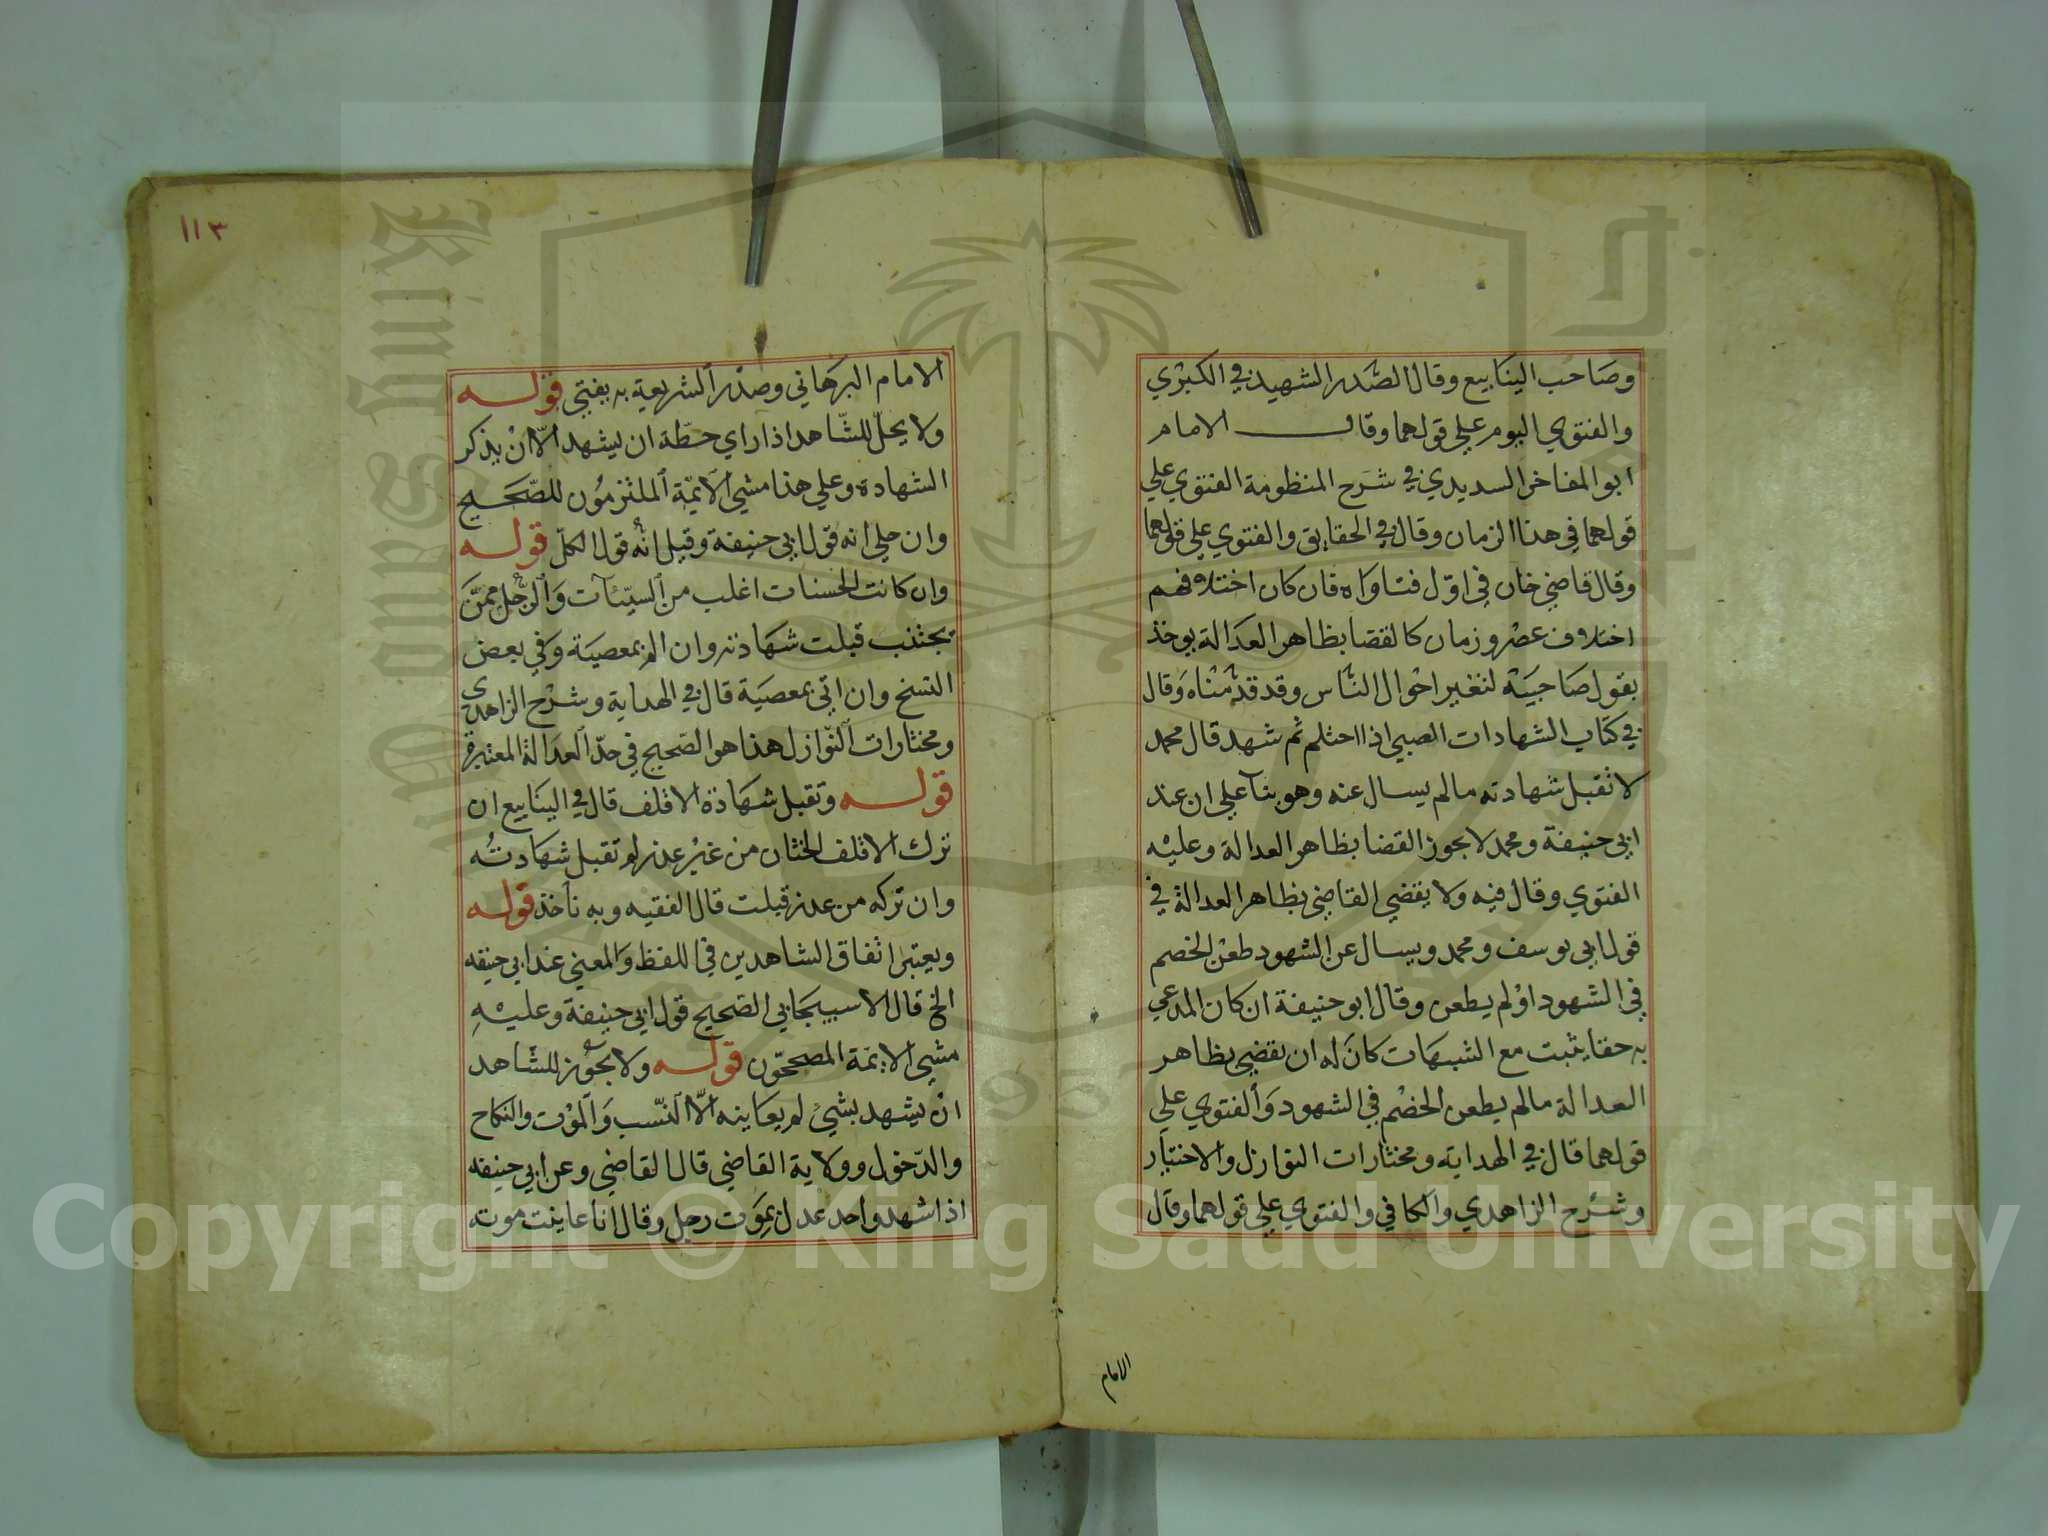 وصاحب الينابيع وقال الصّدر الشهيد في الكبرٰي
والفتوي اليوم علي قولهما وقال الامام
ابو المفاخر السديدي في شرح المنظومة الفتوي علي
قولهما في هذا الزمان وقال في الحقايق والفتوي علي قولهما
وقال قاضي خان في اوّل فتاواه فان كان اختلافهم
اختلاف عصر وزمان كالقضا بظاهر العدالة يوخذ
بقول صاحبيه لتغير احوال النّاس وقد قدّمناه وقال
في كتاب الشهادات الصبي اذا احتلم ثم شهد قال محمد
لا تقبل شهادته مالم يسال عنه وهو بنآ علي ان عند
ابي حنيفة ومحمد لا يجوز القضا بظاهر العدالة وعليه
الفتوي وقال فيه ولا يقضي القاضي بظاهر العدالة في
قول ابي يوسف ومحمد ويسال عن الشهود طعن الخصم
في الشهود او لم يطعن وقال ابو حنيفة ان كان المدعي
به حقا يثبت مع الشبهات كان له ان يقضي بظاهر
العدالة مالم يطعن الخصم في الشهود والفتوي علي
قولهما قال في الهداية ومختارات النوازل والاختيار
وشرح الزاهدي والكافي والفتوي علي قولهما وقال
الامام
١١٣
الامام البرهاني وصدر الشريعية به يفتي قوله
ولا يحلّ للشّاهد اذا راي خطّة ان يشهد الّا ان يذكر
الشهادة وعلي هذا مشي الايمّة الملتزمون للصّحيح
وان حلي انه قول ابي حنيفة وقيل انّه قول الكلّ قوله
وان كانت الحسنات اغلب من السيّئات والرّجل ممّن
يجتنب قبلت شهادته وان الم بمعصية وفي بعض
النسخ وان اتي بمعصية قال في الهداية وشرح الزاهدي
ومختارات النّوازل هذا هو الصّحيح في حدّ العدالة المعتبرة
قوله وتقبل شهادة الاقلف قال في الينابيع ان
ترك الاقلف الختان من غير عذر لم تقبل شهادته
وان تركه من عذر قبلت قال الفقيه وبه نآخذ قوله
ويعتبر اتفاق الشاهدين في اللفظ والمعني عند ابي حنيفه
الخ قال الاسبيجابي الصّحيح قول ابي حنيفة وعليه
مشي الايمّة المصححّون قوله ولا يجوز للشّاهد
ان يشهد بشي لم يعاينه الّا النّسب والموت والنكاح
والدّخول وولاية القاضي قال القاضي وعن ابي حنيفه
اذا شهد واحد عدل بموت رجل وقال انا عاينت موته
Copyright © King Saud University